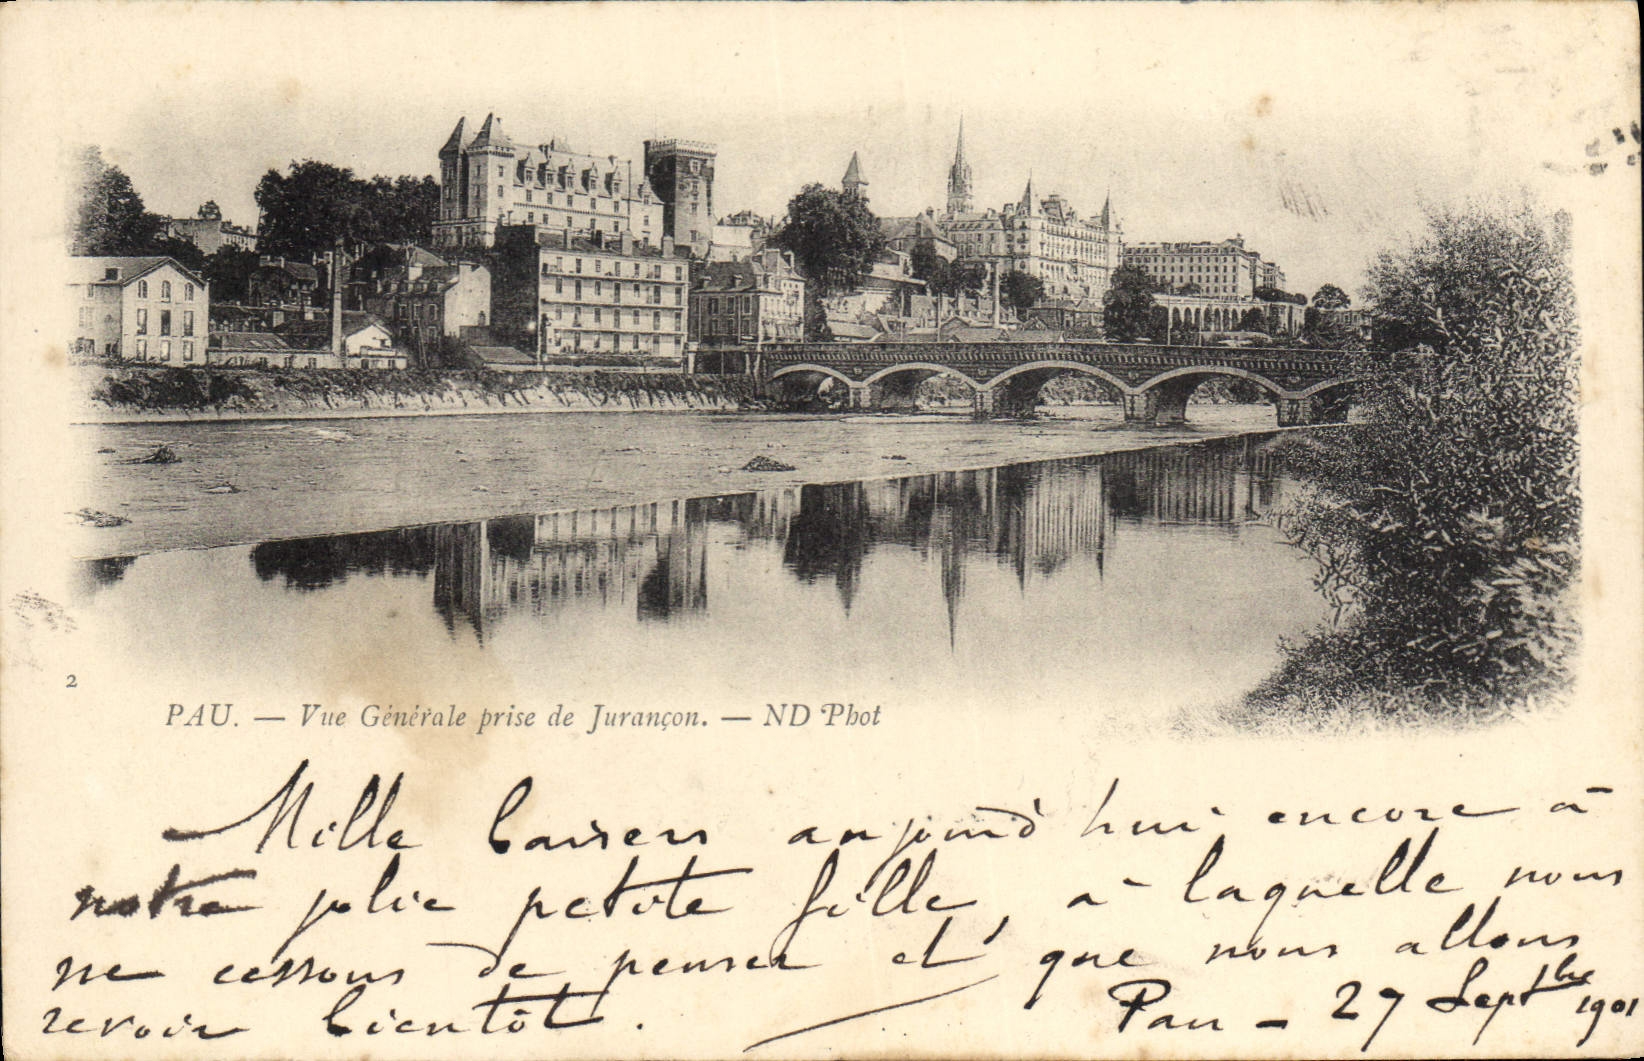 2
PAU. — Vue Générale prise de Jurançon. — ND Phot
Mille baisers aujourd'hui encore à
notre jolie petite fille, à laquelle nous
ne cessons de penser et que nous allons
revoir bientôt.
Pau - 27 Septbre 1901